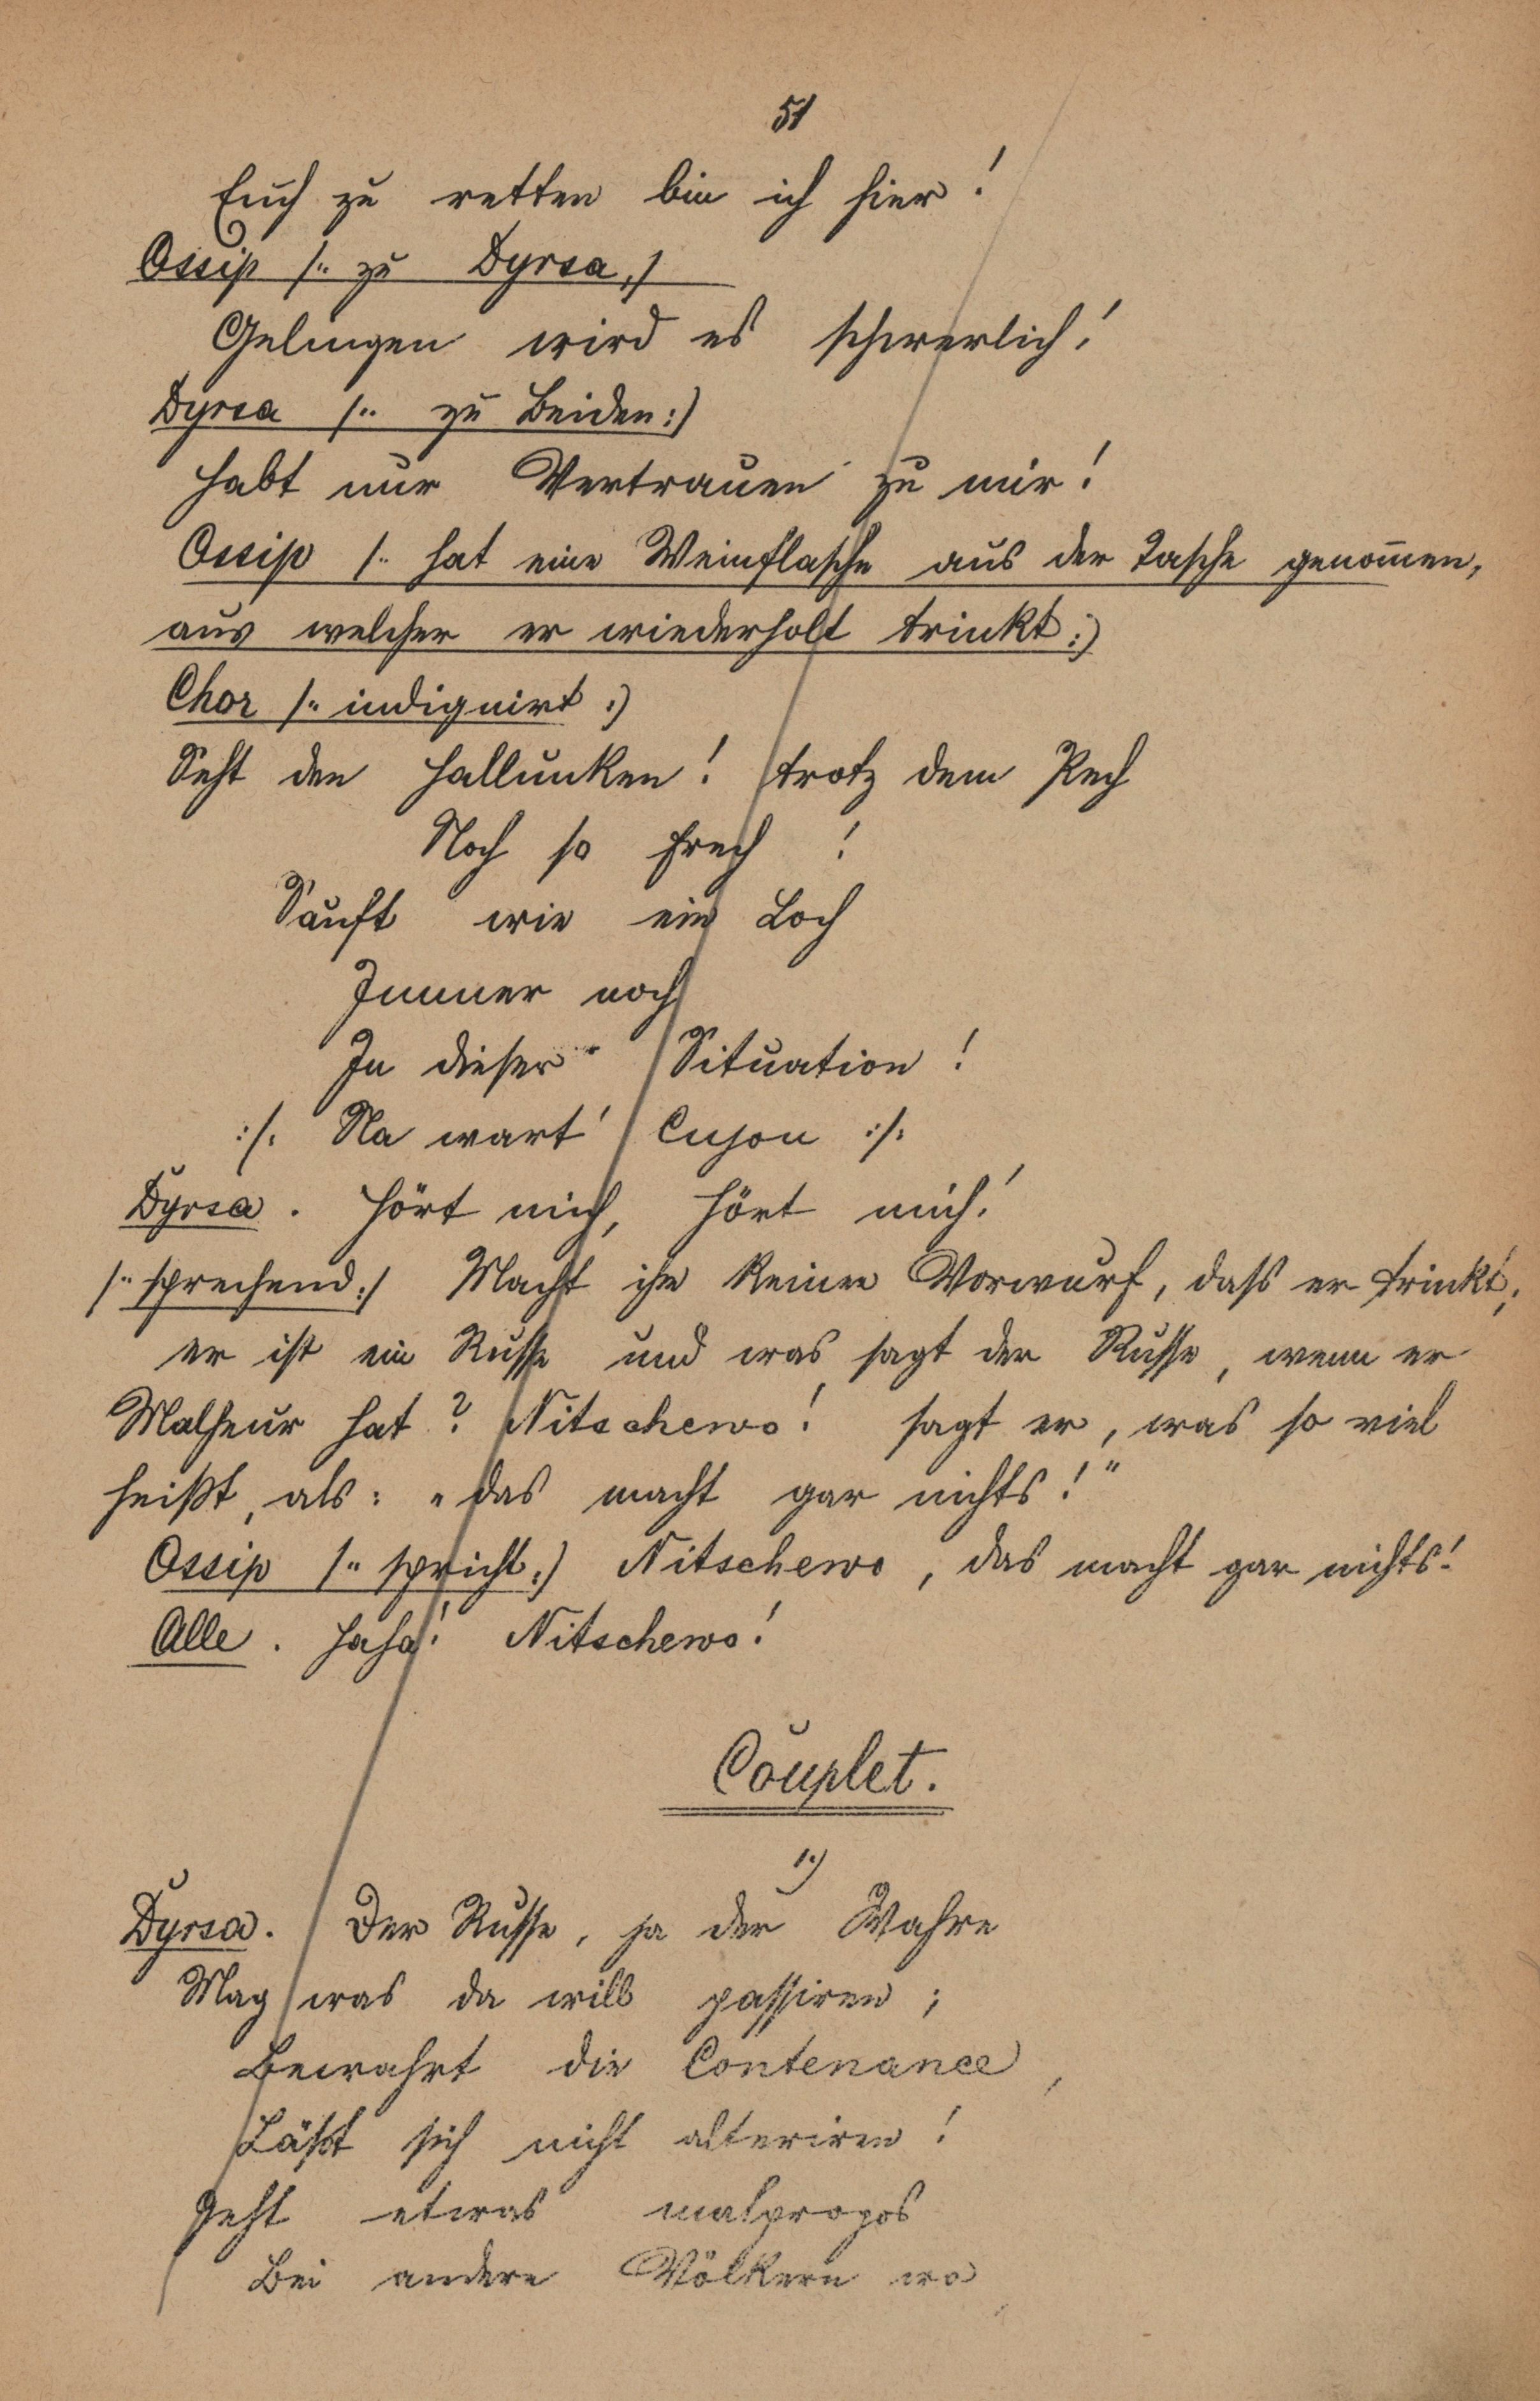 51
Euch zu retten bin ich hier!
Ossip /: zu Dyrsa :/
Gelingen wird es schwerlich!
Dyrsa /: zu Beiden :/
Habt nur Vertrauen zu mir!
Ossip /: hat eine Weinflasche aus der Tasche genom̄en,
aus welcher er wiederholt trinkt :/
Chor /: indignirt :/
Seht den Hallunken! trotz dem Pech
Noch so frech!
Säuft wie ein Loch
Immer noch
In dieser Situation!
:/: Na wart' Cujon :/:
Dyrsa. Hört mich, hört mich!
/: sprechend :/ Macht ihm keinen Vorwurf, dass er trinkt;
er ist ein Russe und was sagt der Russe, wenn er
Malheur hat? Nitschewo! sagt er, was so viel
heißt, als: „das macht gar nichts!"
Ossip /: spricht :/ Nitschewo, das macht gar nichts!
Alle. Haha! Nitschewo!
Couplet.
1.)
Dyrsa. Der Russe, ja der Wahre
Mag was da will passiren;
Bewahrt die Contenance,
Läßt sich nicht alteriren!
Geht etwas malpropos
Bei andern Völkern wo